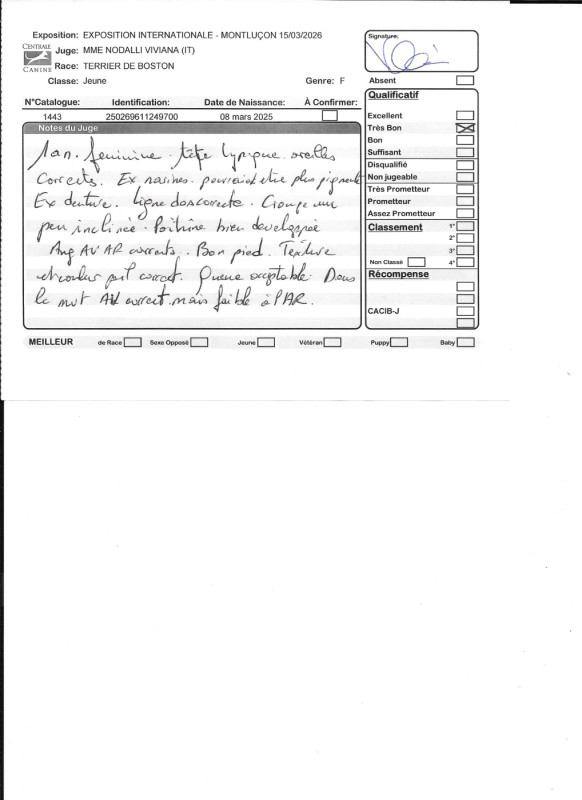 Exposition: EXPOSITION INTERNATIONALE - MONTLUÇON 15/03/2026
CENTRALE CANINE
Juge: MME NODALLI VIVIANA (IT)
Race: TERRIER DE BOSTON
Classe: Jeune Genre: F
N°Catalogue: Identification: Date de Naissance: À Confirmer:
1443 250269611249700 08 mars 2025
Notes du Juge
1an. feminine. tête typique. oreilles
correctes. Ex narines. pourraient être plus pigmenté
Ex denture. ligne dos correcte. Croupe une
peu inclinée. Poitrine bien developpée
Ang AV AR corrects. Bon pied. Texture
et couleur poil correct. Queue acceptable. Dans
le mvt AV correct mais faible à l'AR.
Signature:
Absent
Qualificatif
Excellent
Très Bon
Bon
Suffisant
Disqualifié
Non jugeable
Très Prometteur
Prometteur
Assez Prometteur
Classement 1°
2°
3°
Non Classé 4°
Récompense
CACIB-J
MEILLEUR de Race Sexe Opposé Jeune Vétéran Puppy Baby